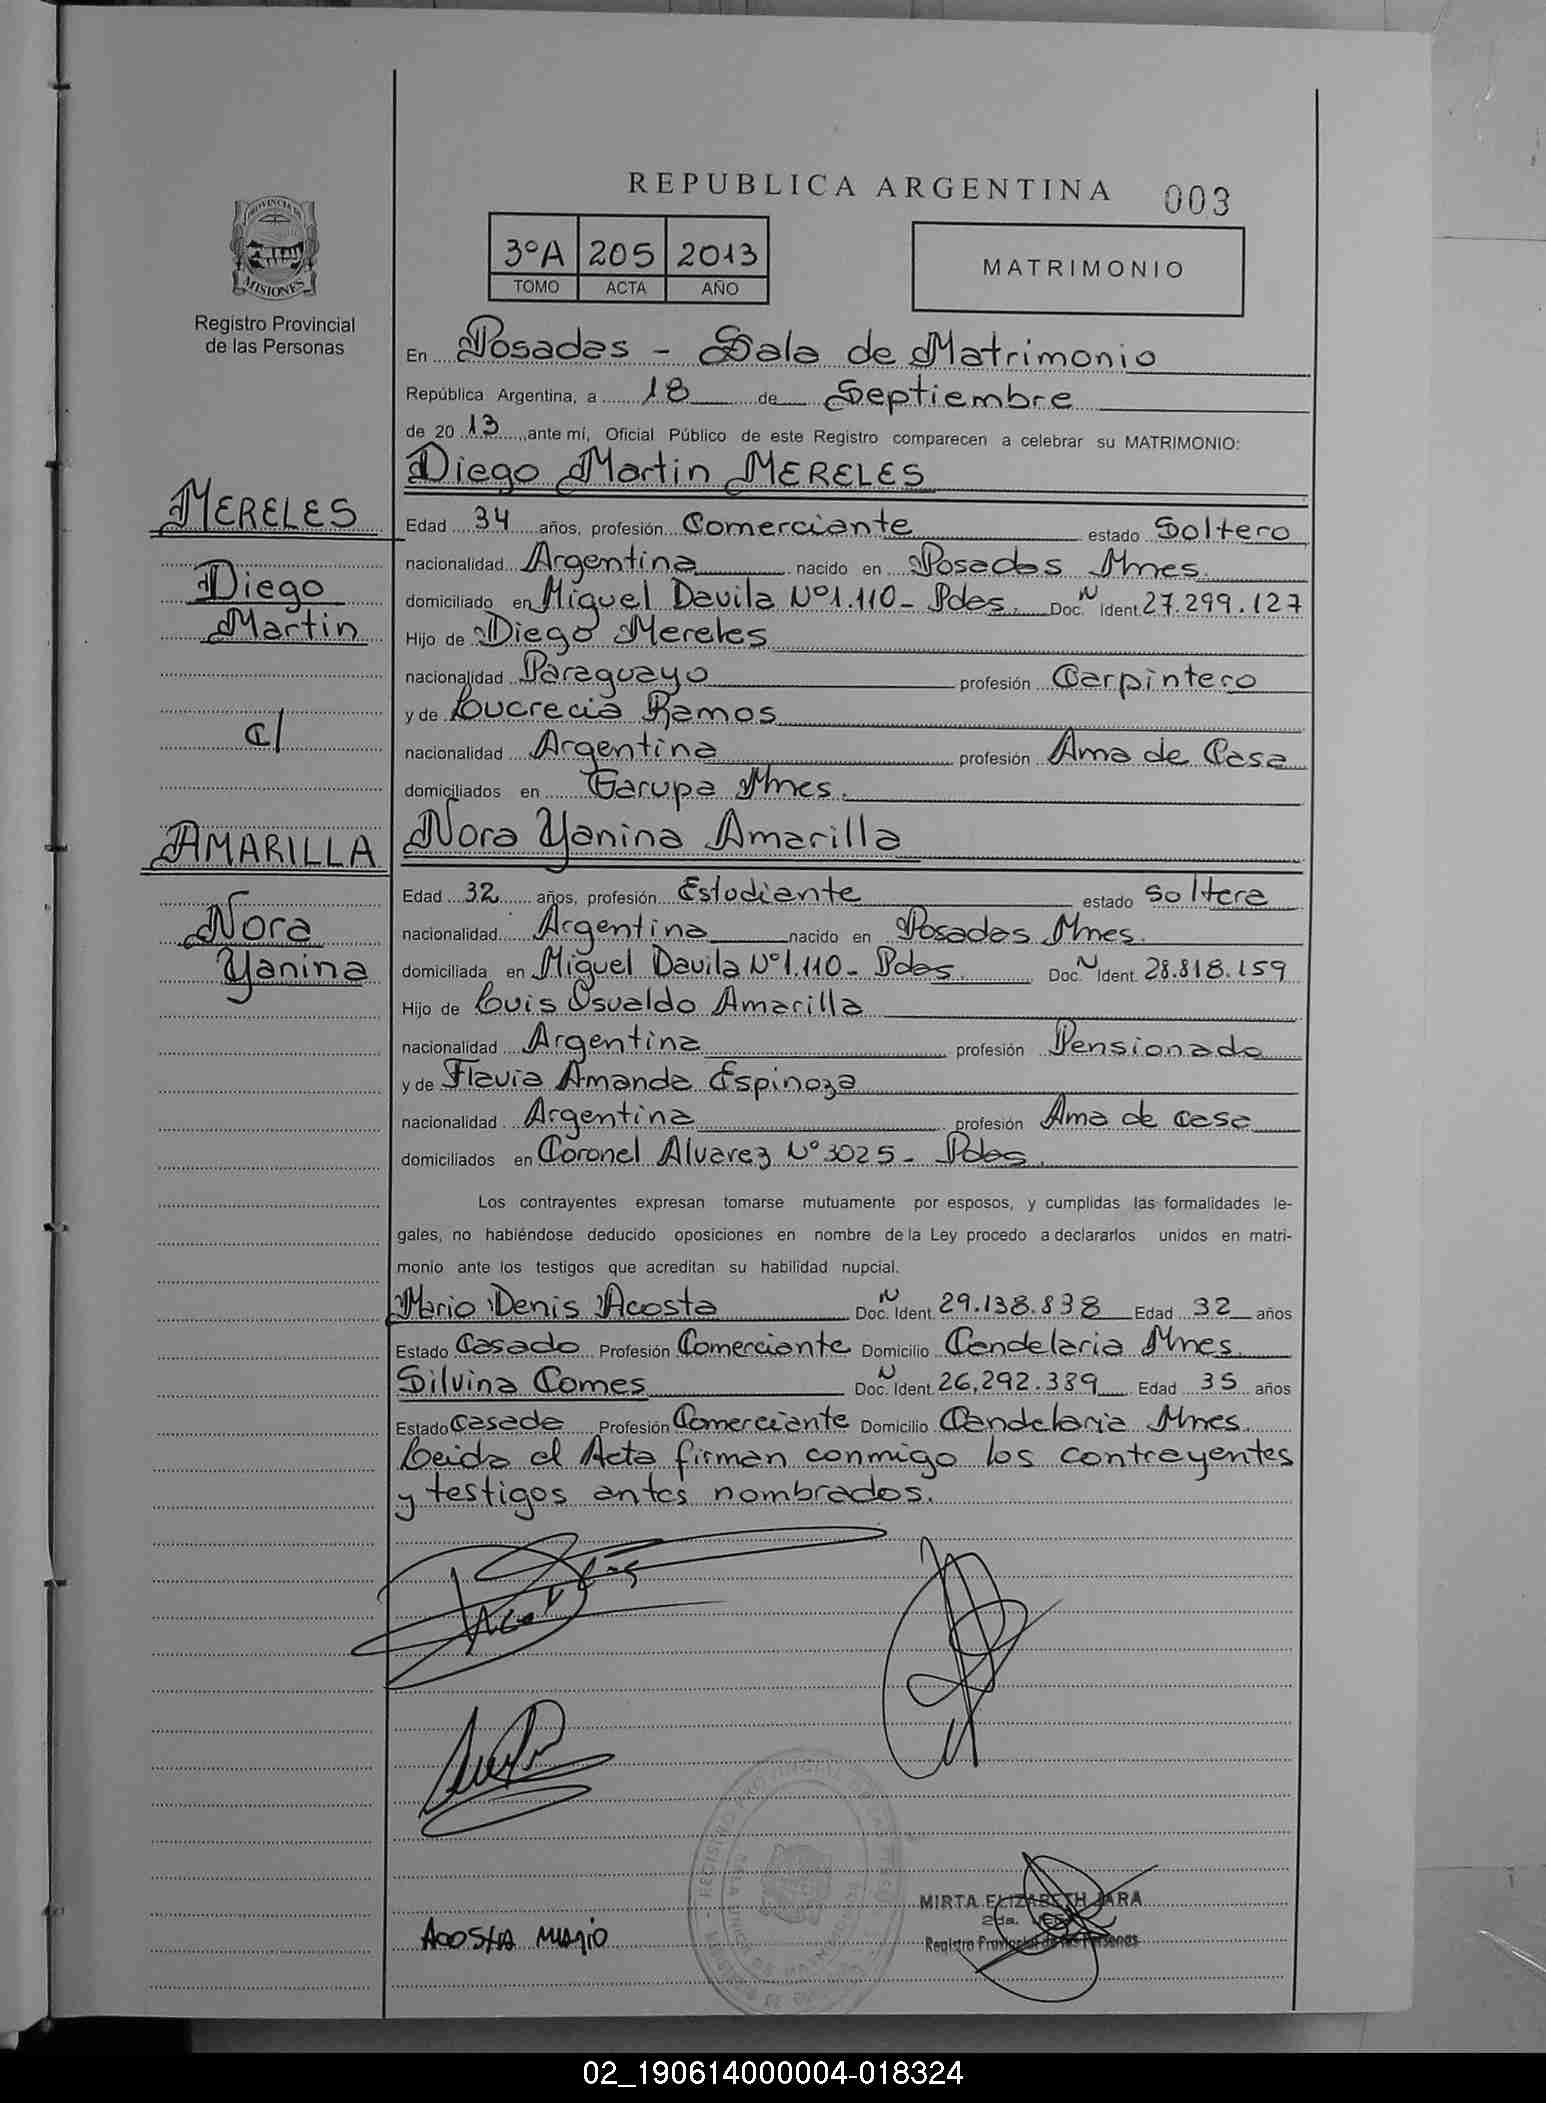 REPUBLICA ARGENTINA 003
PROVINCIA DE
MISIONES
Registro Provincial
de las Personas
3ºA 205 2013
TOMO ACTA AÑO
MATRIMONIO
En Posadas - Sala de Matrimonio
República Argentina, a 18 de Septiembre
de 2013, ante mí, Oficial Público de este Registro comparecen a celebrar su MATRIMONIO:
Diego Martin MERELES
MERELES
Diego
Martin
c/
AMARILLA
Nora
Yanina
Edad 34 años, profesión Comerciante estado Soltero
nacionalidad Argentina nacido en Posadas Mnes.
domiciliado en Miguel Davila Nº1.110- Pdas. Doc. N Ident. 27.299.127
Hijo de Diego Mereles
nacionalidad Paraguayo profesión Carpintero
y de Lucrecia Ramos
nacionalidad Argentina profesión Ama de Casa
domiciliados en Garupa Mnes.
Nora Yanina Amarilla
Edad 32 años, profesión Estudiante estado Soltera
nacionalidad Argentina nacido en Posadas Mnes.
domiciliada en Miguel Davila Nº1.110- Pdas. Doc. N Ident. 28.818.159
Hijo de Luis Osvaldo Amarilla
nacionalidad Argentina profesión Pensionado
y de Flavia Amanda Espinoza
nacionalidad Argentina profesión Ama de casa
domiciliados en Coronel Alvarez Nº3025- Pdas.
Los contrayentes expresan tomarse mutuamente por esposos, y cumplidas las formalidades le-
gales, no habiéndose deducido oposiciones en nombre de la Ley procedo a declararlos unidos en matri-
monio ante los testigos que acreditan su habilidad nupcial.
Mario Denis Acosta Doc. N Ident. 29.138.838 Edad 32 años
Estado Casado Profesión Comerciante Domicilio Candelaria Mnes.
Silvina Comes Doc. N Ident. 26.292.389 Edad 35 años
Estado Casada Profesión Comerciante Domicilio Candelaria Mnes.
Leida el Acta firman conmigo los contrayentes
y testigos antes nombrados.
ACOSTA MARIO
MIRTA ELIZABETH JARA
2da.
Registro Provincial de las Personas
02_190614000004-018324